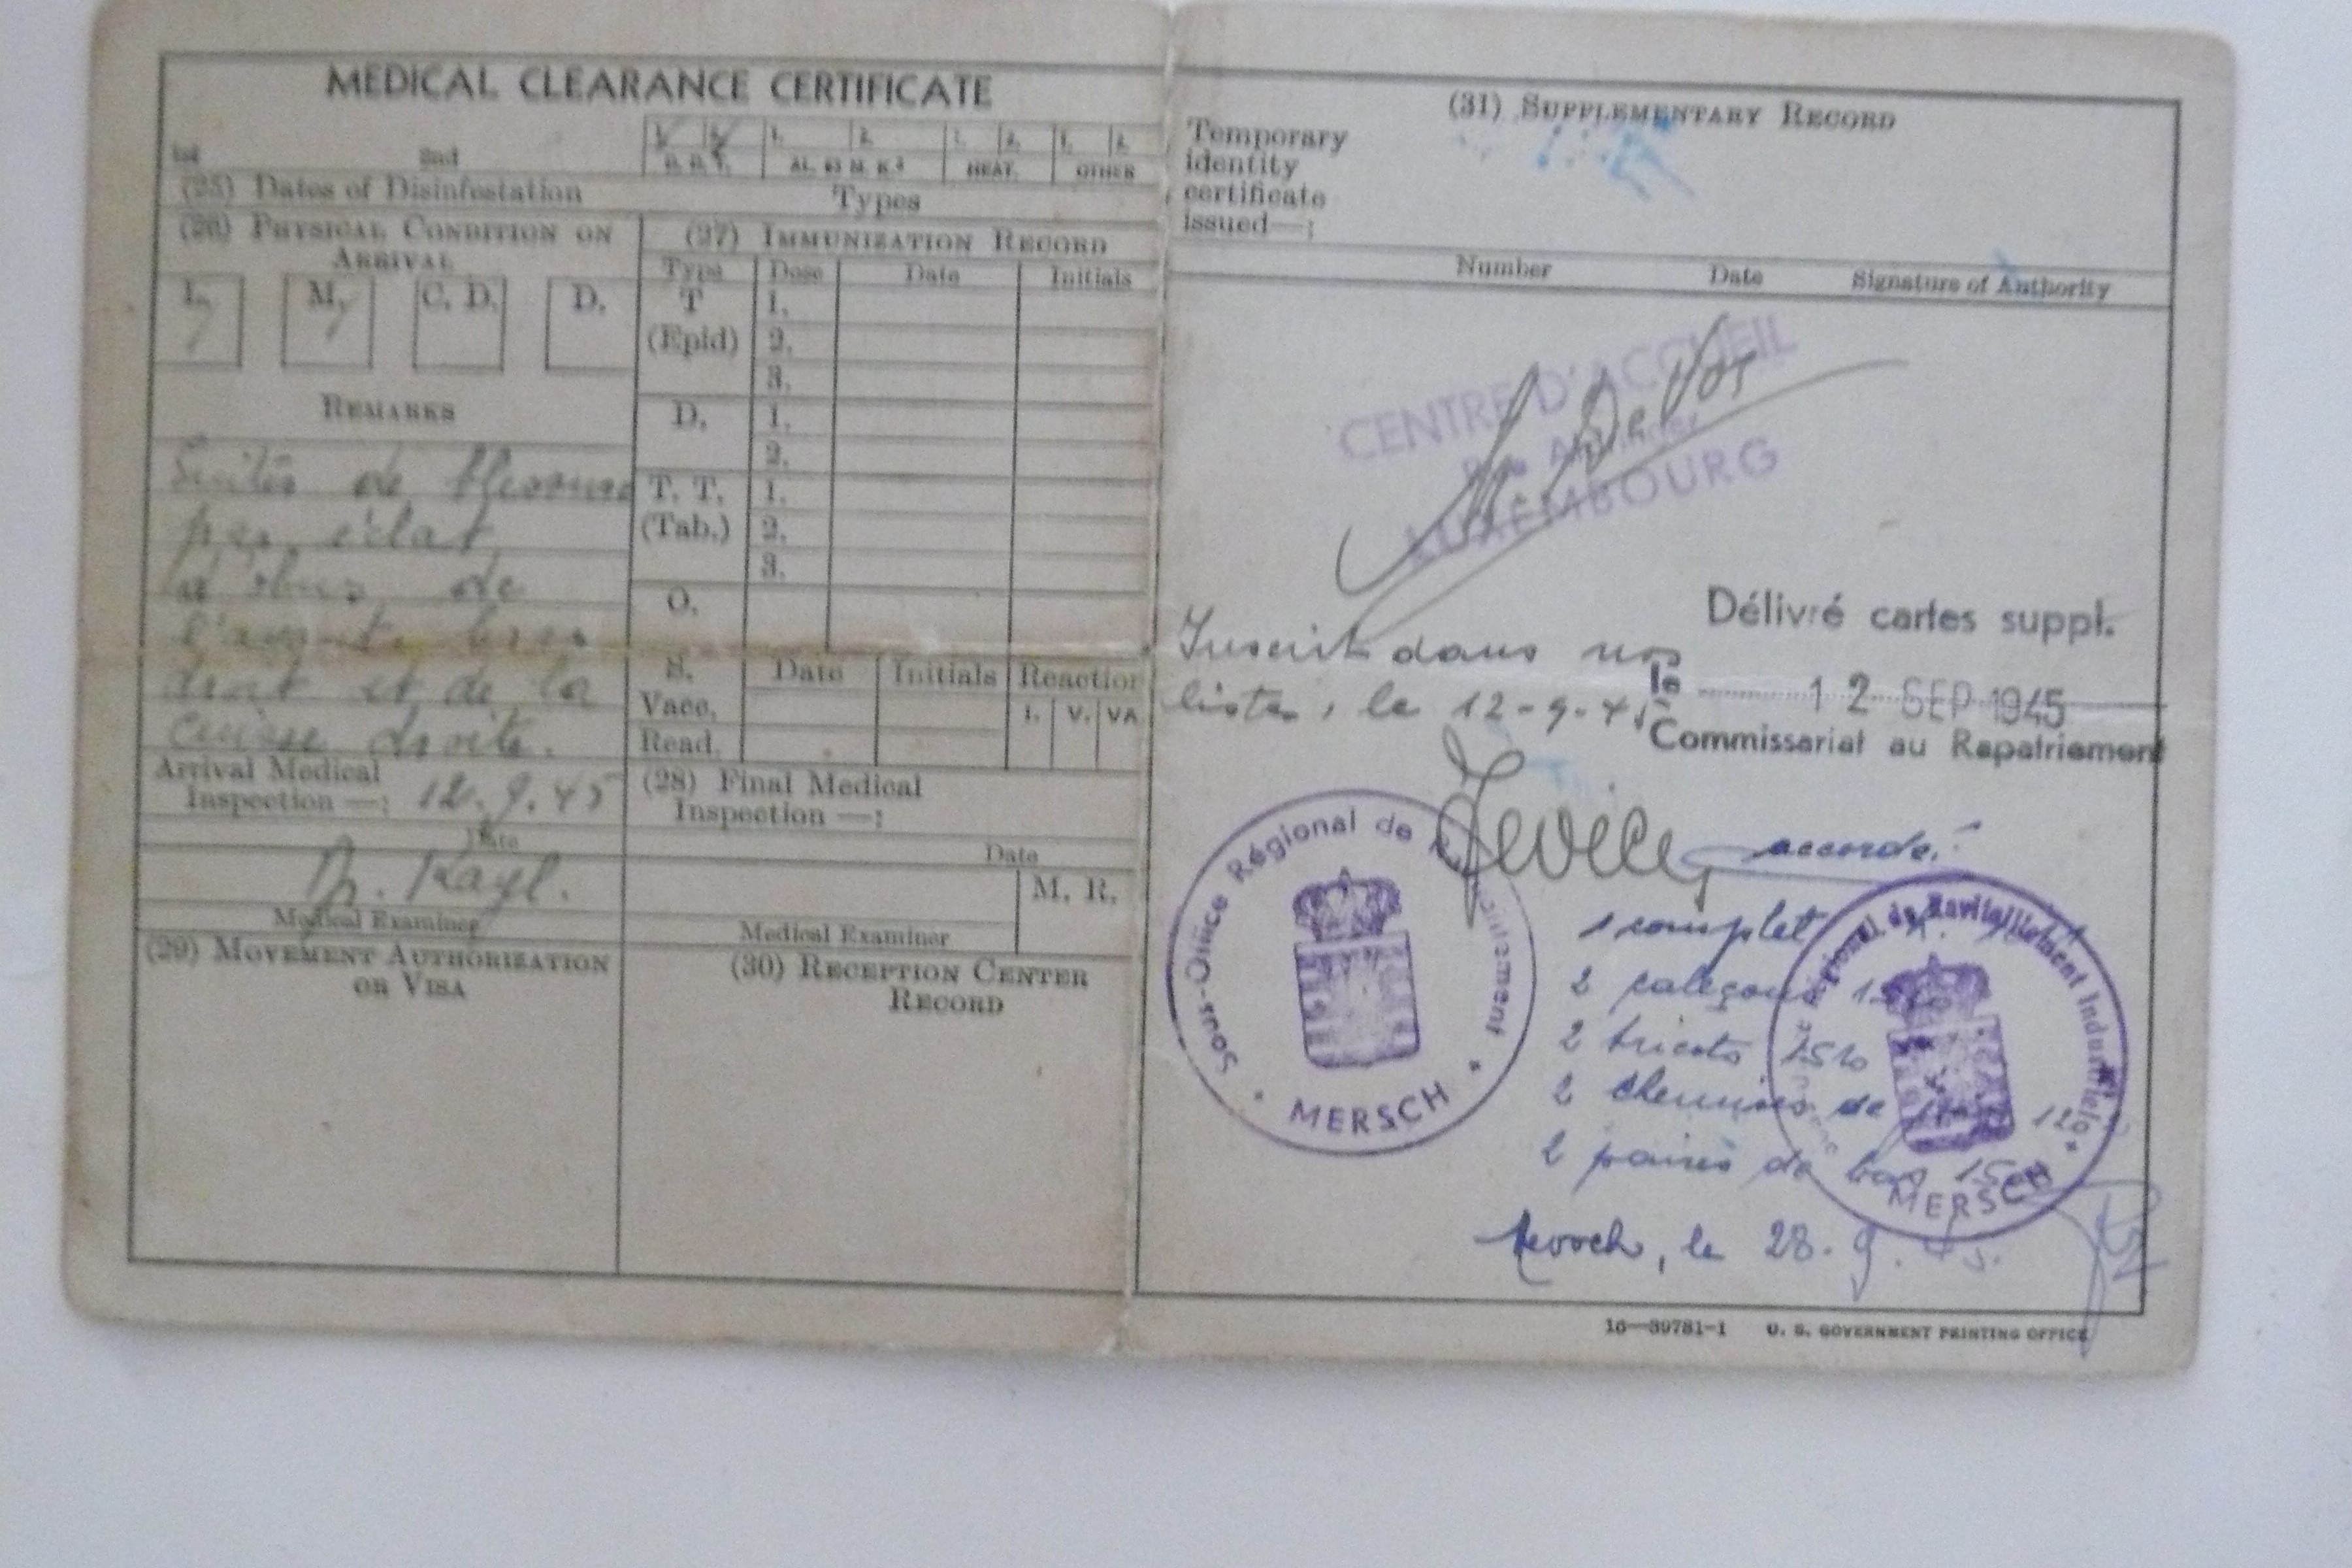 MEDICAL CLEARANCE CERTIFICATE
1. 2. 1. 2. 1. 2. 1. 2.
1st 2nd D. D. T. AL. 63 M. K.3 HEAT. OTHER
(25) Dates of Disinfestation Types
(26) PHYSICAL CONDITION ON ARRIVAL
L. M. C. D. D.
REMARKS
Suites de blessure
par éclat
d'obus de
l'avant-bras
droit et de la
cuisse droite.
Arrival Medical
Inspection—: 12.9.45
Date
Dr. Kayl.
Medical Examiner
(27) IMMUNIZATION RECORD
Type Dose Date Initials
T (Epid) 1.
2.
3.
D. 1.
2.
T. T. (Tab.) 1.
2.
3.
O.
S. Date Initials Reaction
Vacc. I. V. VA
Read.
(28) Final Medical
Inspection—:
Date
M. R.
Medical Examiner
(29) MOVEMENT AUTHORIZATION
OR VISA
(30) RECEPTION CENTER
RECORD
(31) SUPPLEMENTARY RECORD
Temporary
identity
certificate
issued—:
Number Date Signature of Authority
CENTRE D'ACCUEIL
LUXEMBOURG
Inscrit dans nos
listes, le 12-9-45
Délivré cartes suppl.
le 12 SEP 1945
Commissariat au Rapatriement
Sous-Office Régional de Ravitaillement
MERSCH
accordé:
1 complet
2 caleçons
2 tricots 1510
2 chemises de 120
2 paires de bas
Régional de Ravitaillement Industriel
MERSCH
Mersch, le 28.9.45.
16—39781-1 U. S. GOVERNMENT PRINTING OFFICE